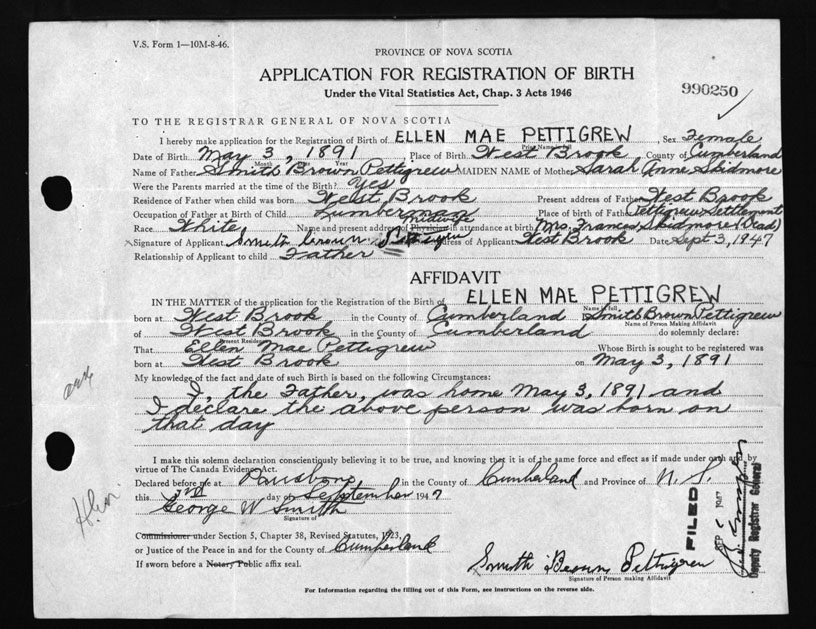 V.S. Form 1—10M-8-46.
PROVINCE OF NOVA SCOTIA
APPLICATION FOR REGISTRATION OF BIRTH
Under the Vital Statistics Act, Chap. 3 Acts 1946
990250
TO THE REGISTRAR GENERAL OF NOVA SCOTIA
I hereby make application for the Registration of Birth of ELLEN MAE PETTIGREW Sex Female
Print Name in full
Date of Birth May 3, 1891 Place of Birth West Brook County of Cumberland
Month Date Year
Name of Father Smith Brown Pettigrew MAIDEN NAME of Mother Sarah Anne Skidmore
Were the Parents married at the time of the Birth? Yes
Residence of Father when child was born West Brook Present address of Father West Brook
Occupation of Father at Birth of Child Lumberman Place of birth of Father Pettigrew Settlement
Midwife
Race White Name and present address of Physician in attendance at birth Mrs. Frances Skidmore (Dead)
Signature of Applicant Smith brown Pettigrew Address of Applicant West Brook Date Sept 3, 1947
Relationship of Applicant to child Father
AFFIDAVIT
IN THE MATTER of the application for the Registration of the Birth of ELLEN MAE PETTIGREW
Name in full
born at West Brook in the County of Cumberland I, Smith Brown Pettigrew
Name of Person Making Affidavit
of West Brook in the County of Cumberland do solemnly declare:
Present Residence
That Ellen Mae Pettigrew Whose Birth is sought to be registered was
born at West Brook on May 3, 1891
My knowledge of the fact and date of such Birth is based on the following Circumstances:
I, the Father, was home May 3, 1891 and
I declare the above person was born on
that day
I make this solemn declaration conscientiously believing it to be true, and knowing that it is of the same force and effect as if made under oath and by
virtue of The Canada Evidence Act.
Declared before me at Parrsboro in the County of Cumberland and Province of N. S.
this 3rd day of September 1947
George W Smith
Signature of
Commissioner under Section 5, Chapter 38, Revised Statutes, 1923,
or Justice of the Peace in and for the County of Cumberland
If sworn before a Notary Public affix seal.
Smith Brown Pettigrew
Signature of Person making Affidavit
For Information regarding the filling out of this Form, see instructions on the reverse side.
FILED
SEP 1947
Deputy Registrar General